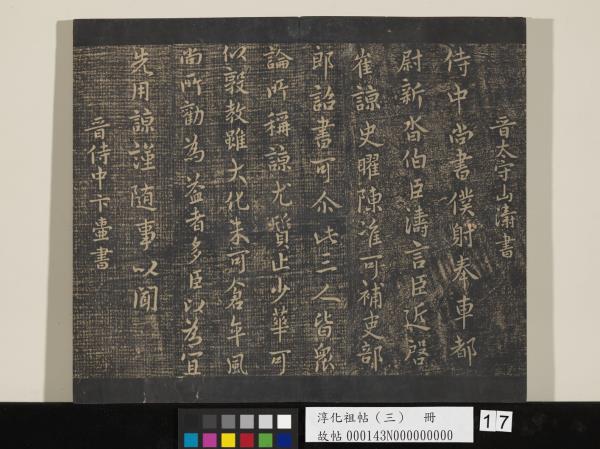 晉太守山濤書
侍中尚書僕射奉車都
尉新沓伯臣濤言臣近啓
崔諒史曜陳准可補吏部
郎詔書可尒此三人皆衆
論所稱諒尤質止少華可
以敦教雖大化未可倉卒風
尚所勸為益者多臣以為宜
先用諒謹随事以聞
晉侍中卞壷書
淳化祖帖（三） 冊
故帖 000143N000000000
17